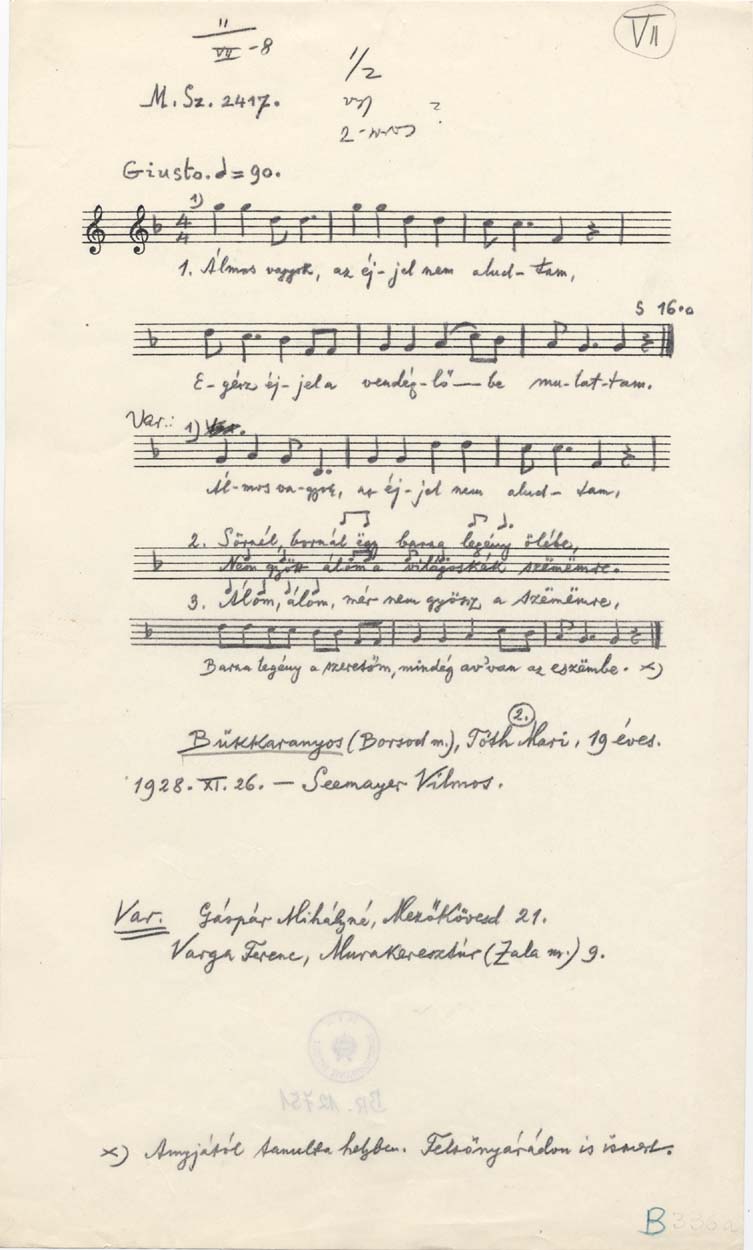 II
VII -8
VII
1/2
M. Sz. 2417.
?
Giusto. = 90.
1)
4
4
1. Álmos vagyok, az éj-jel nem alud-tam,
S 16.a
E-gész éj-jel a vendég-lő-be mu-lat-tam.
Var.: 1)
Ál-mos va-gyok, az éj-jel nem alud-tam,
2. Sörnél, bornál ëgy barna legény ölébe,
Nem gyött álom a világoskék szëmëmre.
3. Álom, álom, mér nem gyösz a szëmëmre,
Barna legény a szeretőm, mindég av'van az eszëmbe. x)
2.
Bükkaranyos (Borsod m.), Tóth Mari, 19 éves.
1928. XI. 26. – Seemayer Vilmos.
Var. Gáspár Mihályné, Mezőkövesd 21.
Varga Ferenc, Murakeresztúr (Zala m.) 9.
BR. 12751
x) Anyjától tanulta helyben. Felsőnyárádon is ismert.
B 336a